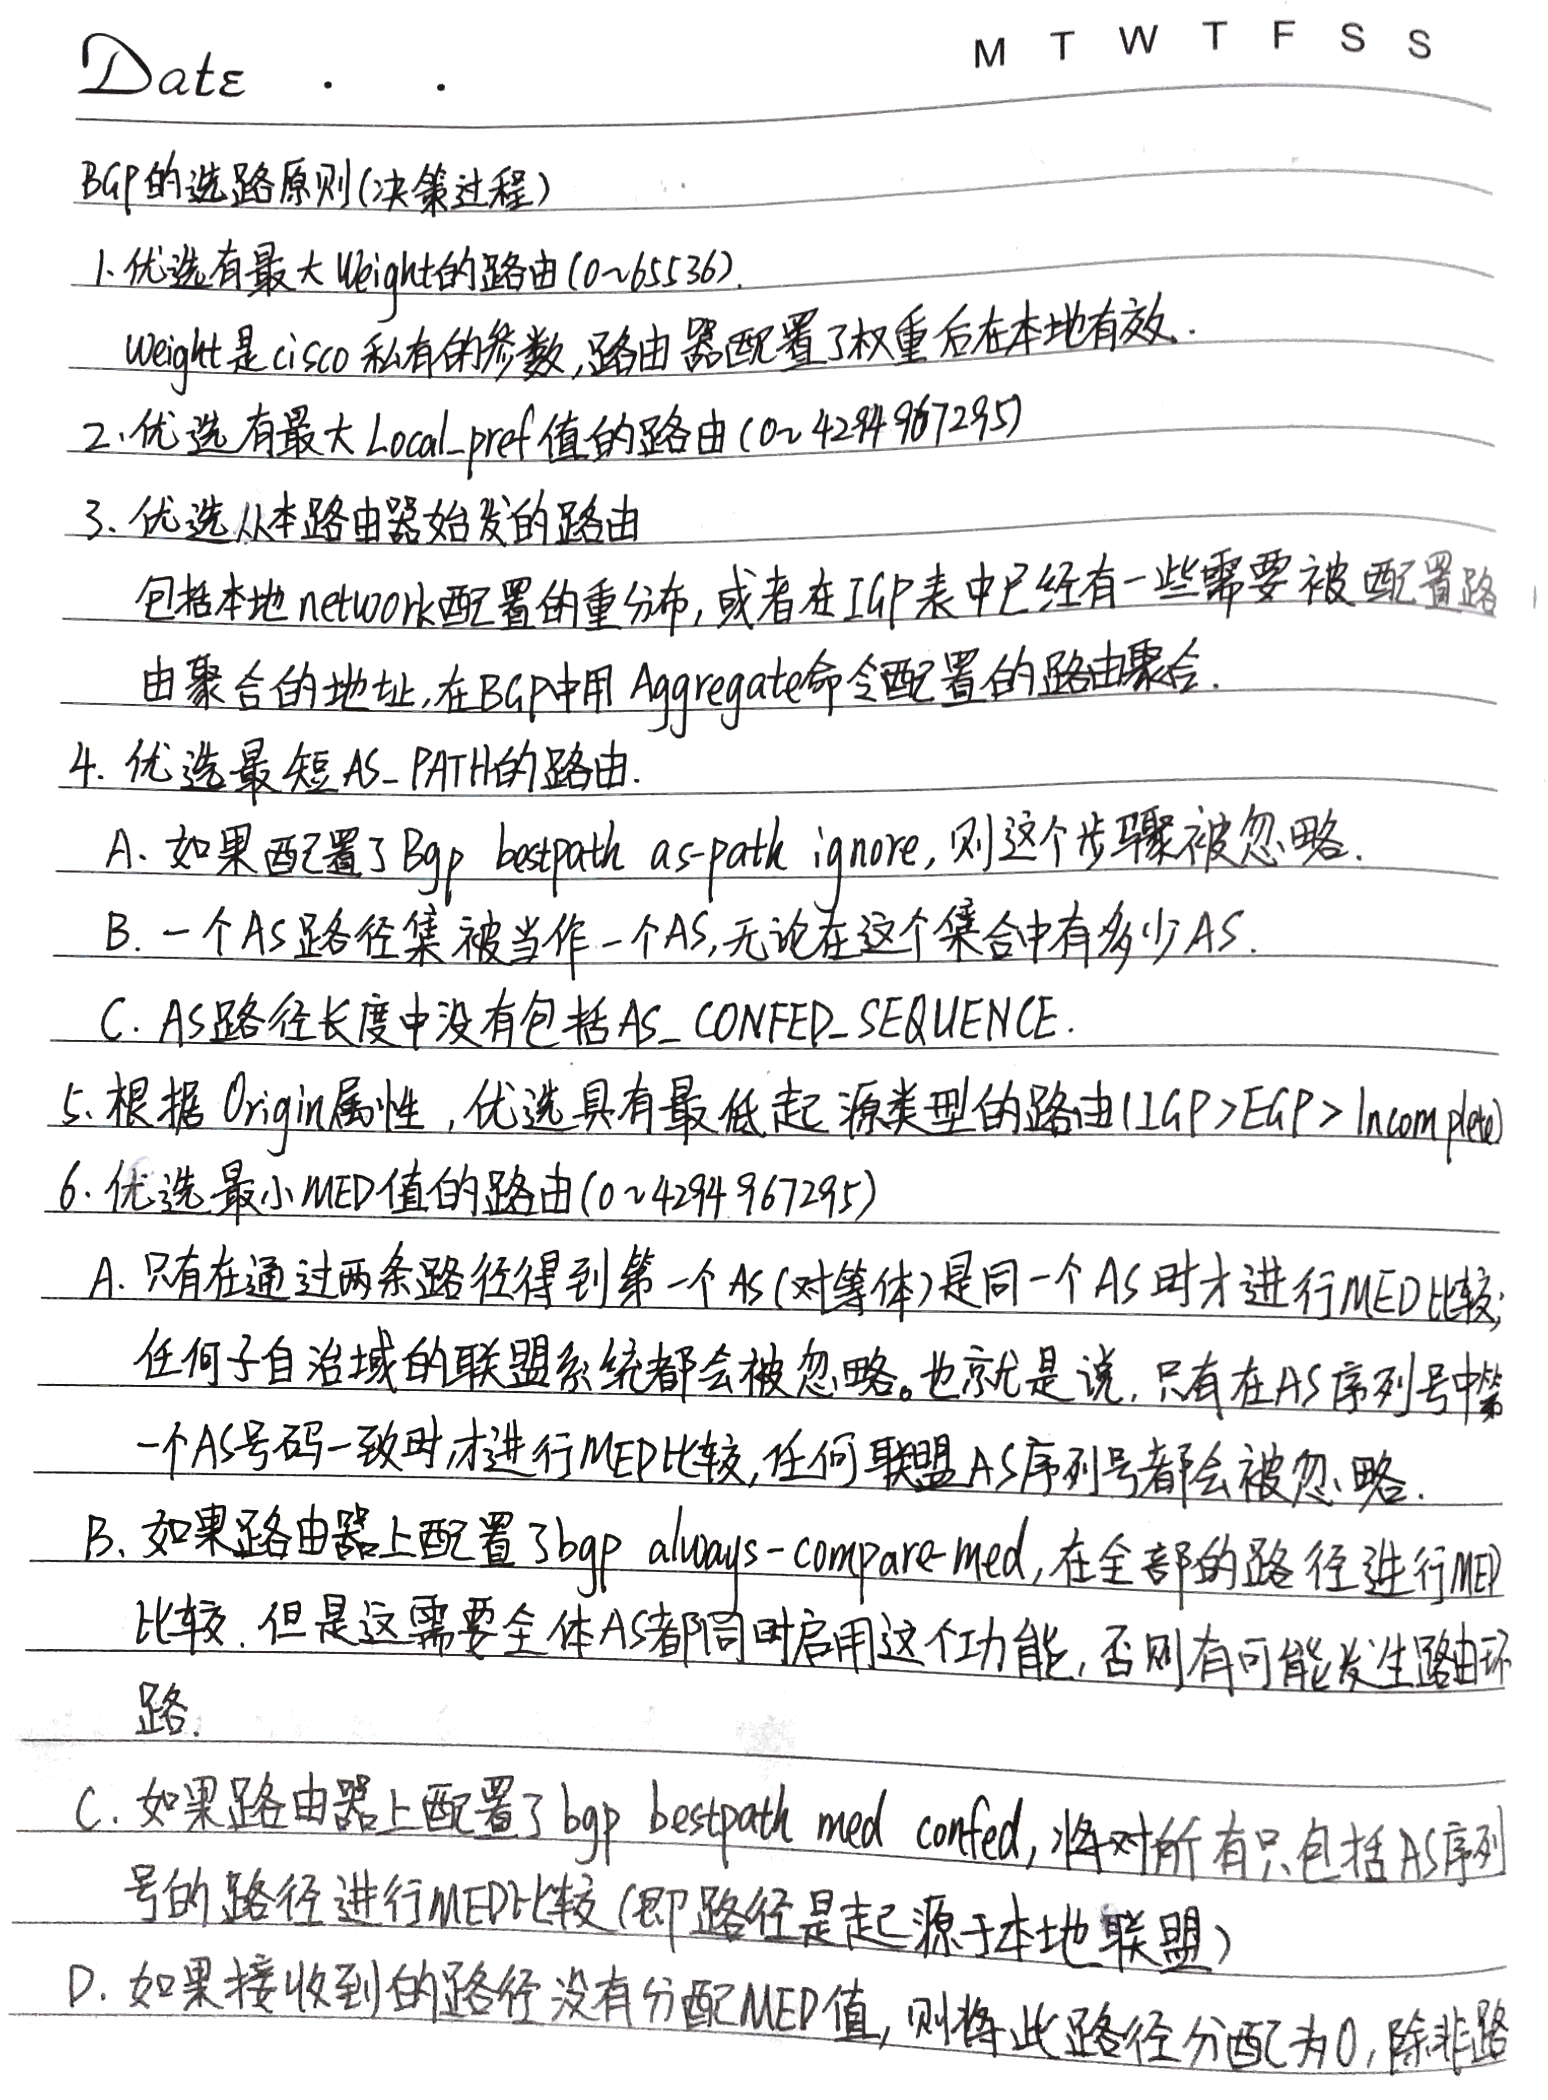 M T W T F S S
Date . .
BGP的选路原则(决策过程)
1.优选有最大Weight的路由(0~65536).
weight是cisco私有的参数,路由器配置了权重后在本地有效.
2.优选有最大Local_pref值的路由(0~4294967295)
3.优选从本路由器始发的路由
包括本地network配置的重分布,或者在IGP表中已经有一些需要被配置路
由聚合的地址,在BGP中用Aggregate命令配置的路由聚合.
4.优选最短AS_PATH的路由.
A.如果配置了Bgp bestpath as-path ignore,则这个步骤被忽略.
B.一个AS路径集被当作一个AS,无论在这个集合中有多少AS.
C.AS路径长度中没有包括AS_CONFED_SEQUENCE.
5.根据Origin属性,优选具有最低起源类型的路由(IGP>EGP>Incomplete)
6.优选最小MED值的路由(0~4294967295)
A.只有在通过两条路径得到第一个AS(对等体)是同一个AS时才进行MED比较;
任何子自治域的联盟系统都会被忽略。也就是说,只有在AS序列号中第
一个AS号码一致时,才进行MED比较,任何联盟AS序列号都会被忽略.
B.如果路由器上配置了bgp always-compare-med,在全部的路径进行MED
比较.但是这需要全体AS都同时启用这个功能,否则有可能发生路由环
路.
C.如果路由器上配置了bgp bestpath med confed,将对所有只包括AS序列
号的路径进行MED比较(即路径是起源于本地联盟)
D.如果接收到的路径没有分配MED值,则将此路径分配为0,除非路